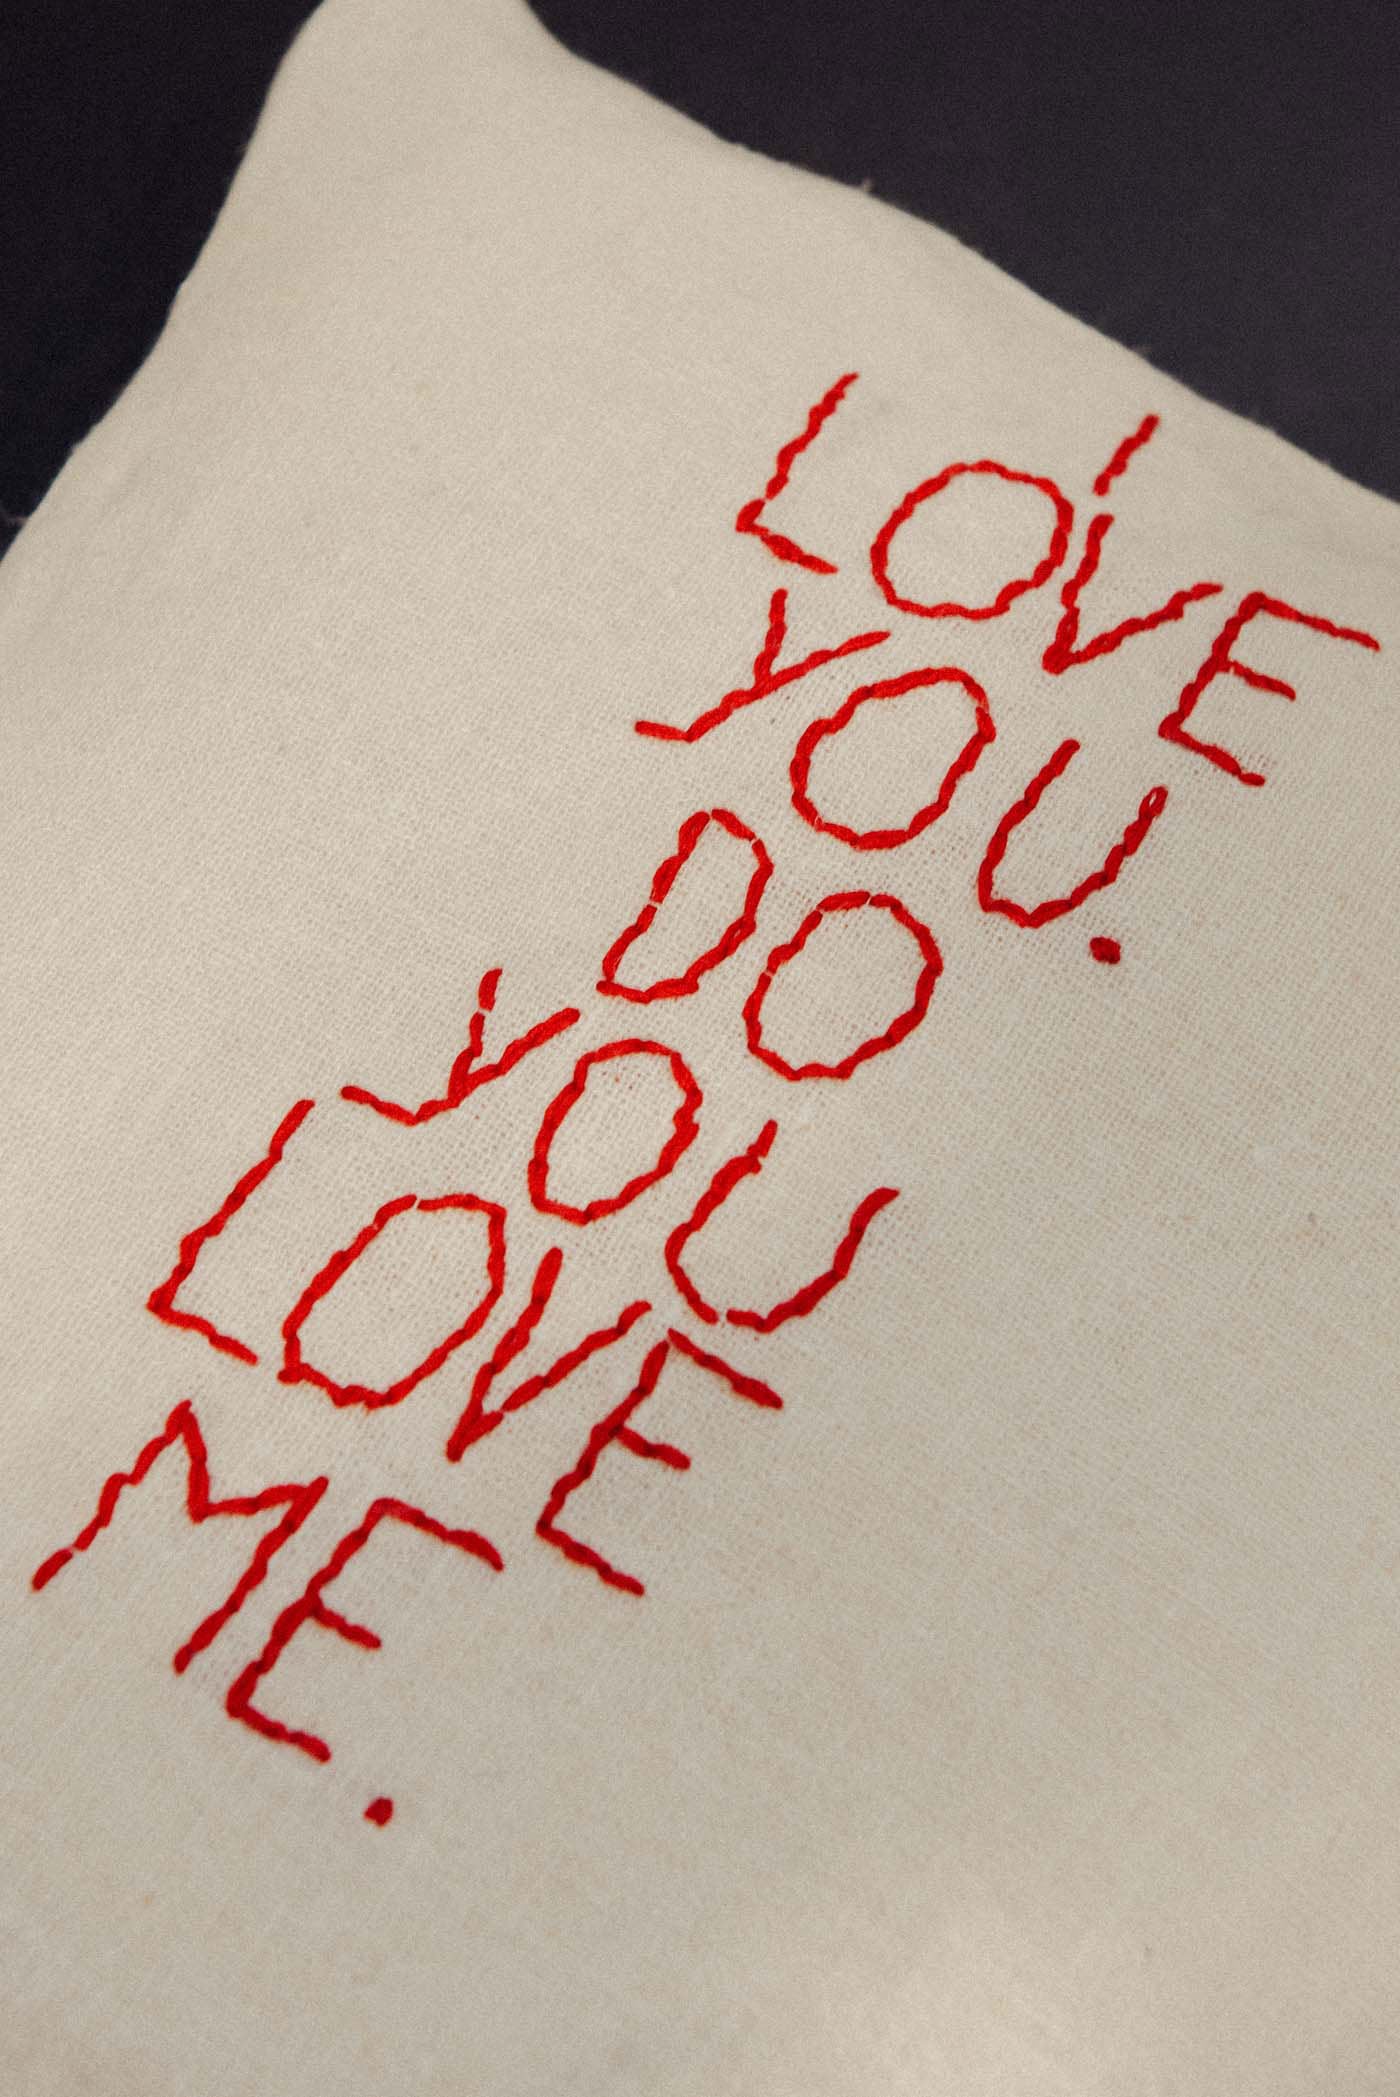 I
LOVE
YOU.
DO
YOU
LOVE
ME.